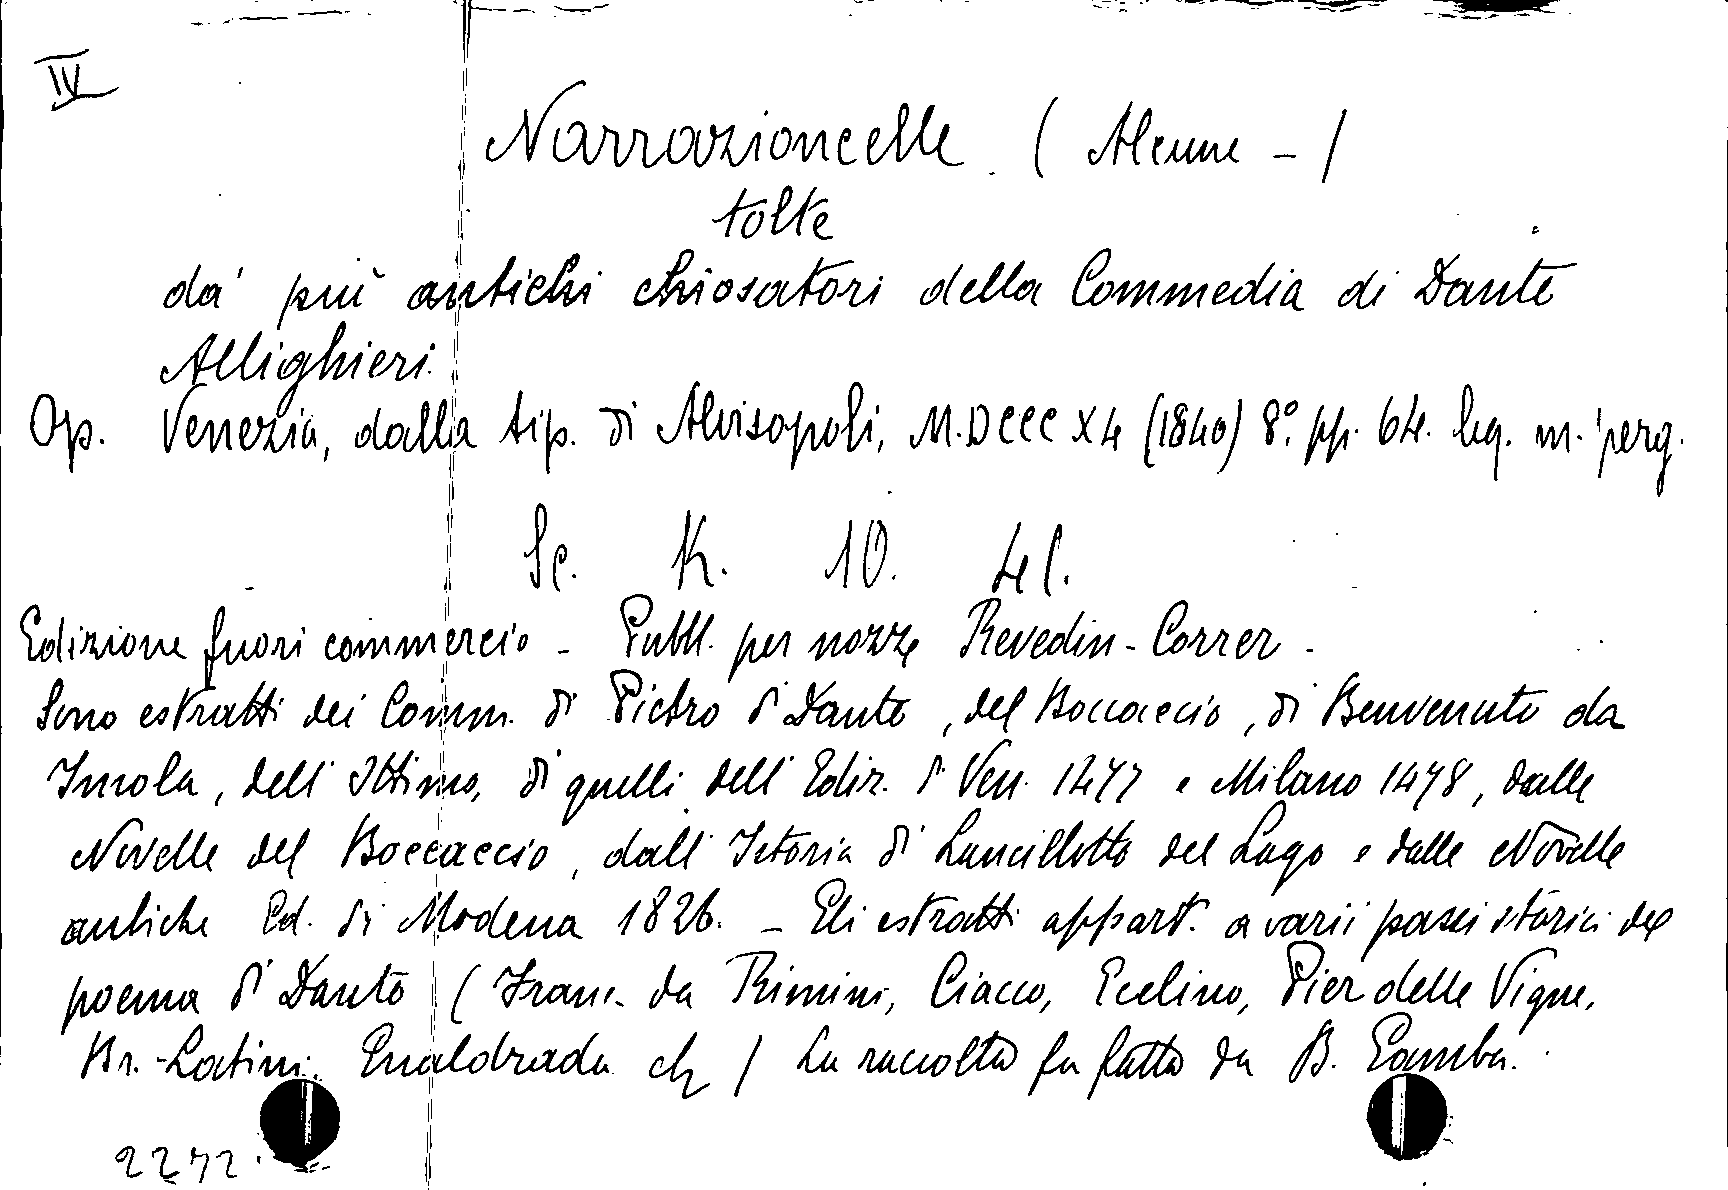 IV
Narrazioncelle (Alcune - )
tolte
da' più antichi chiosatori della Commedia di Dante
Allighieri.
Op. Venezia, dalla tip. di Alvisopoli, M.DCCC XL (1840) 8.° pp. 64. leg. m. perg.
Sc. K. 10. 41.
Edizione fuori commercio - Pubbl. per nozze Revedin-Correr -
Sono estratti dei Comm. di Pietro di Dante, del Boccaccio, di Benvenuto da
Imola, dell'Ottimo, di quelli dell'Ediz. di Ven. 1477 e Milano 1478, dalle
Novelle del Boccaccio, dall'Istoria di Lancillotto del Lago e dalle Novelle
antiche Ed. di Modena 1826. - Gli estratti appart. a varii passi storici del
poema di Dante (Franc. da Rimini, Ciacco, Ecelino, Pier delle Vigne,
Br. Latini, Gualdrada ) La raccolta fu fatta da B. Gamba.
2272.